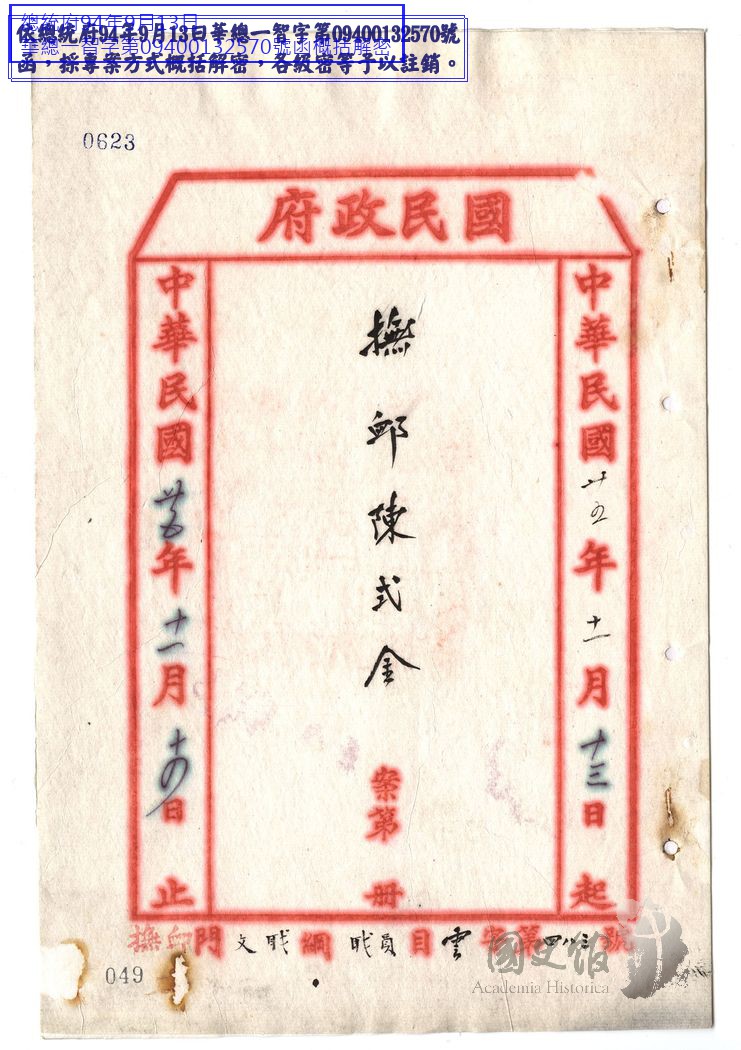 總統府94年9月13日
華總一智字第09400132570號函概括解密
依總統府94年9月13日華總一智字第09400132570號
函，採專案方式概括解密，各級密等予以註銷。
0623
國民政府
中華民國廿五年十一月十三日起
撫卹陳式金
案第 冊
中華民國廿五年十一月十四日止
撫卹門文職綱職員目雲字第四八三號
049
國史館
Academia Historica